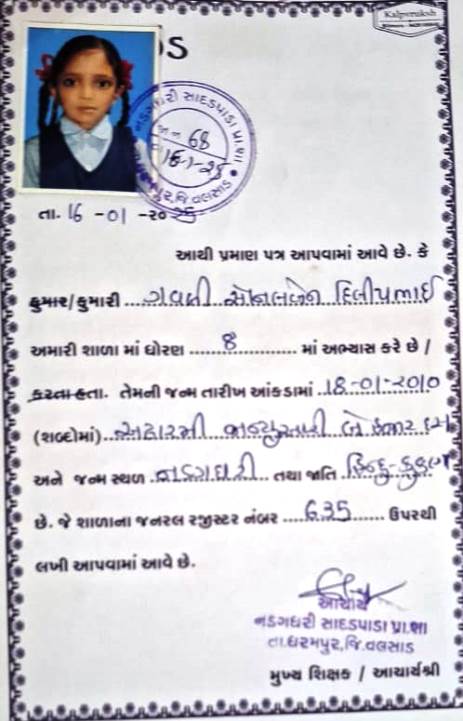 Kalpvruksh
DS
નડગધરી સાદડપાડા પ્રા.શા
68
16-1-25
ધરમપુર, જિ.વલસાડ
તા. 16 -01 -૨૦25
આથી પ્રમાણ પત્ર આપવામાં આવે છે. કે
કુમાર/કુમારી ....ગવળી સોનલબેન દિલીપભાઈ
અમારી શાળા માં ધોરણ ........8........ માં અભ્યાસ કરે છે /
કરતા હતા. તેમની જન્મ તારીખ આંકડામાં ..18-01-2010
(શબ્દોમાં) ..અઢારમી જાન્યુઆરી બે હજાર દસ
અને જન્મ સ્થળ ..નડગધરી.... તથા જાતિ હિન્દુ-કુકણા
છે. જે શાળાના જનરલ રજીસ્ટર નંબર ....635..... ઉપરથી
લખી આપવામાં આવે છે.
આચાર્ય
નડગધરી સાદડપાડા પ્રા.શા
તા.ધરમપુર,જિ.વલસાડ
મુખ્ય શિક્ષક / આચાર્યશ્રી